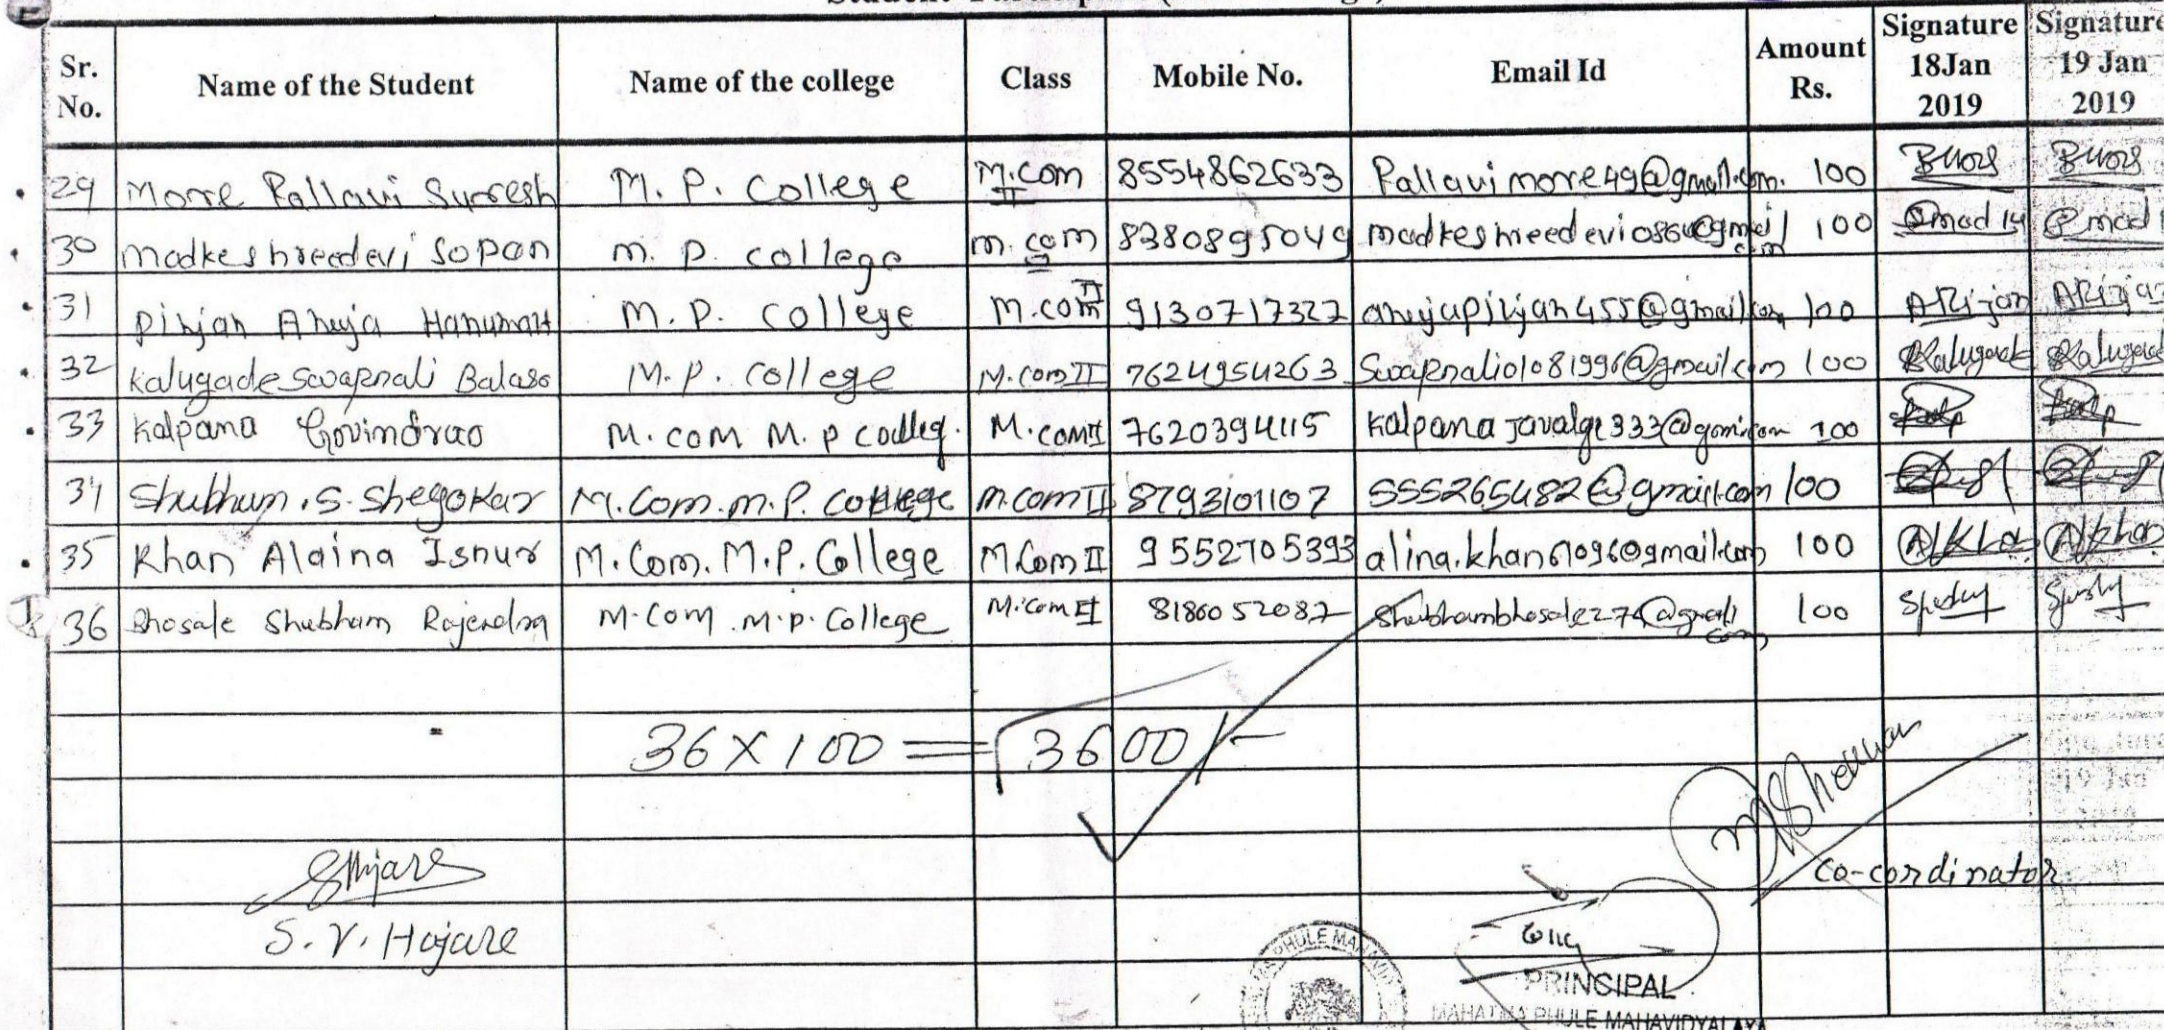 Sr. No. Name of the Student Name of the college Class Mobile No. Email Id Amount Rs. Signature 18Jan 2019 Signature 19 Jan 2019
29 More Pallavi Suresh M. P. College M.com II 8554862633 Pallavimore49@gmail.com. 100
30 Madke shreedevi Sopan m. p. college m. com 8380895049 madkeshreedevi0864@gmail.com 100
31 Pinjan Anuja Hanumant M. P. College M.com II 9130717327 anujapinjan455@gmail.com 100
32 Kalugade Swapnali Balaso M. P. College M.com II 7624954263 Swapnali01081996@gmail.com 100
33 Kalpana Govindrao M. com M. p colleg. M. com II 7620394115 100
34 Shubham. S. Shegokar M. Com. m. P. College m. com II 8793101107 555265482@gmail.com 100
35 Khan Alaina Isnur M. Com. M. P. College M.Com II 9552705393 100
36 Bhosale Shubham Rajendra M. Com. M. p. College M. Com II 8186052087 Shubhambhosale274@gmail.com 100
36 X 100 = 3600/-
Co-cordinator
S. V. Hajare
PRINCIPAL
MAHATMA PHULE MAHAVIDYALAYA